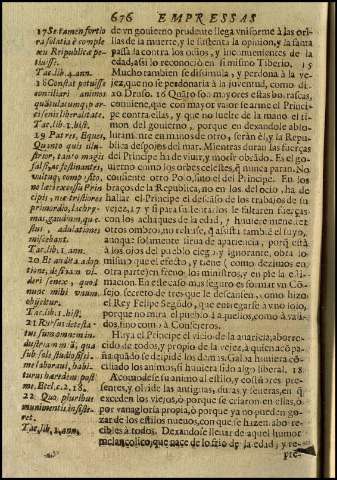 676 EMPRESSAS
17 Setamen fortio
ra solatia è comple
xu Reipublicæ pe-
tiuisse.
Tac. lib. 4. ann.
18 Constat potuisse
conciliari animos
quãtulacumq; par
ci senis liberalitate.
Tac. lib. 1. hist.
19 Patres, Eques,
Quanto quis illu-
strior, tanto magis
falsi, festinantes,
vultuq; composito,
ne læti excessu Prin
cipis, neu tristiores
primordio, lachry-
mas, gaudium, que-
stus, adulationes
miscebant.
Tac. lib. 1. ann.
20 Et audita adop
tione, desinam vi-
deri senex, quod
nunc mihi vnum
obijcitur.
Tac. lib. 1. hist.
21 Rursus detesta-
tus
sub falso studio
me laborant, babi-
turus hæredem post
me. Eccl. c. 2. 18.
22 Quo pluribus
munimentis insiste-
ret.
Tac. lib. 1. ann.
de vn gouierno prudente llega vniforme à las ori-
llas de la muerte, y le sustenta la opinion, y la fama
passada contra los odios, y inconuenientes de la
edad, assi lo reconociò en si mismo Tiberio. 15
Mucho tambien se dissimula, y perdona à la ve-
jez, que no se perdonaria à la juventud, como di-
xo Druso. 16 Quãto son mayores estas borrascas,
conuiene, que con mayor valor se arme el Princi-
pe contra ellas, y que no suelte de la mano el ti-
mon del gouierno, porque en dexandole abso-
lutamente en manos de otro, serán èl, y la Repu-
blica despojos del mar. Mientras duran las fuerças
del Principe ha de viuir, y morir obrãdo. Es el go-
uierno como los orbes celestes, q̃ nunca paran. No
consiente otro Polo, sino el del Principe. En los
braços de la Republica, no en los del ocio, ha de
hallar el Principe el descanso de los trabajos de su
vejez, 17 y si para sustentarlos le faltaren fuerças
con los achaques de la edad, y huuiere menester
otros ombros, no rehuse, q̃ assista tambiẽ el suyo,
aunque solamente sirua de apariencia, porq̃ està
à los ojos del pueblo ciego, y ignorante, obra lo
mismo, que el efecto, y tiene ( como dezimos en
otra parte) en freno los ministros, y en pie la esti-
macion. En este caso mas seguro es formar vn Cõ-
sejo secreto de tres que le descansen, como hizo
el Rey Felipe Segũdo, que entregarse à vno solo,
porque no mira el pueblo à aquellos, como à vali-
dos, sino como à Consejeros.
Huya el Principe el vicio de la auaricia, aborre-
cido de todos, y propio de la vejez, à quien acõpa-
ña quãdo se despide los demas. Galba huuiera con-
ciliado los animos, si huuiera sido algo liberal. 18
Acomode su animo al estilo, y costũbres pre-
sentes, y oluide las antiguas, duras, y seueras, en q̃
exceden los viejos, ò porque se criaron en ellas, ò
por vanagloria propia, ò porque ya no pueden go-
zar de los estilos nueuos, con que se hazen abo-
recibles à todos. Dexandose lleuar de aquel humor
melancolico, que nace de lo frio de la edad, y re-
pre-